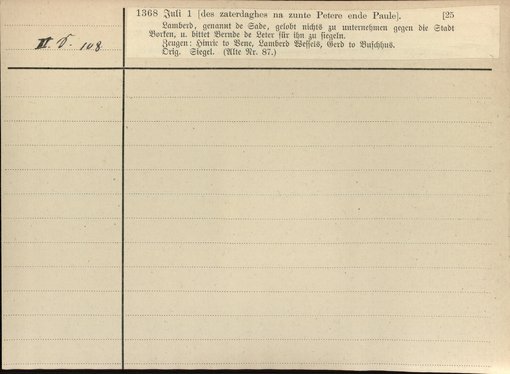 1368 Juli 1 [des zaterdaghes na zunte Petere ende Paule]. [25
Lamberd, genannt de Sade, gelobt nichts zu unternehmen gegen die Stadt
Borken, u. bittet Bernde de Leter für ihn zu siegeln.
Zeugen: Hinric to Bene, Lamberd Wessels, Gerd to Buschhus.
Orig. Siegel. (Alte Nr. 87.)
108